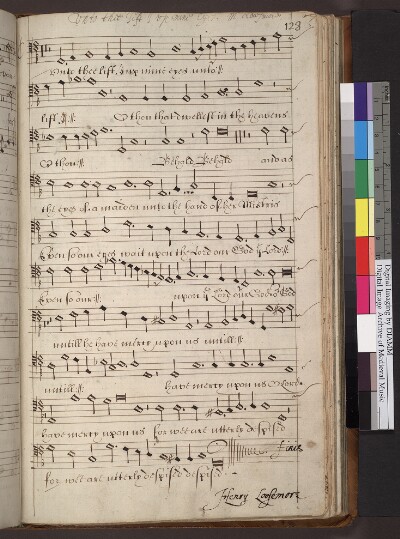 Unto thee lift I up mine eyes
123
Unto thee lift I up mine eyes unto :||:
lift :||: :||: O thou that dwellest in the heavens
O thou :||: Behold Behold and as
the eyes of a maiden unto the hand of her Mistris
Even so our eyes wait upon the Lord our God y Lord :||:
Even so our :||: upon y Lord our God God
untill he have mercy upon us untill :||:
untill :||: have mercy upon us O Lord
have mercy upon us for wee are utterly despised
finis
for wee are utterly despised despised
Henry Loosemore
Digital Imaging by DIAMM
Digital Image Archive of Medieval Music